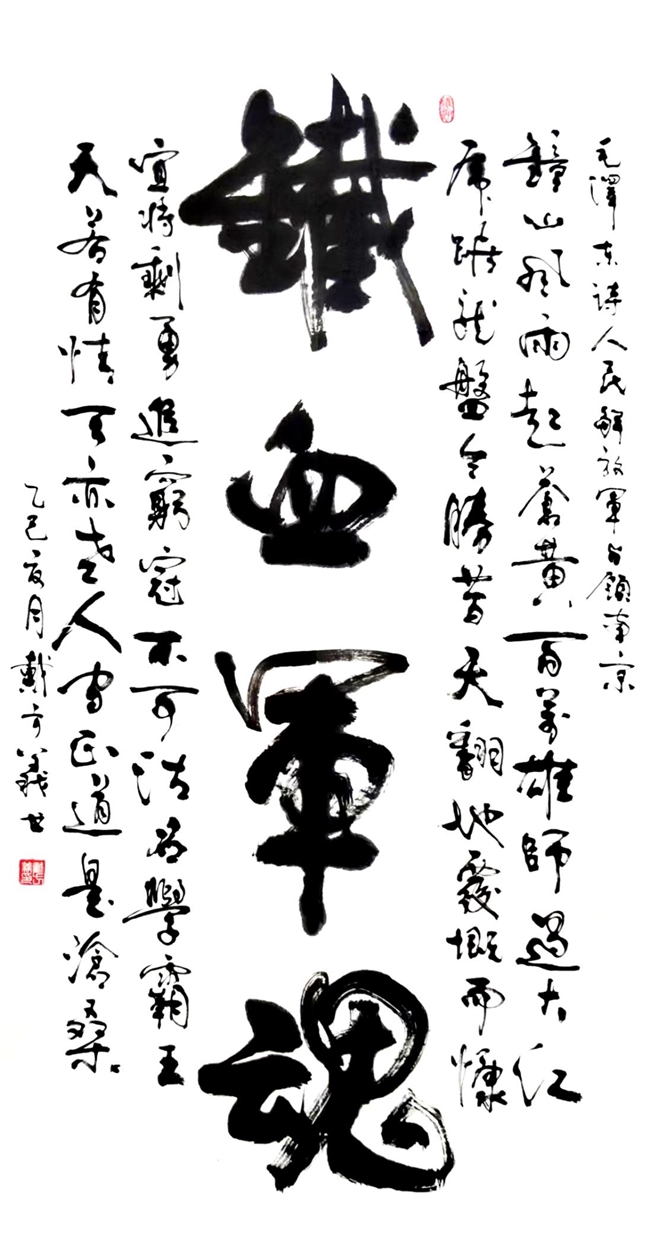 毛澤东詩人民解放軍占領南京
鐘山风雨起蒼黄百萬雄師過大江
虎踞龙盤今勝昔天翻地覆慨而慷
鐵血軍魂
宜将剩勇追窮寇不可沽名學霸王
天若有情天亦老人间正道是滄桑
乙巳夏月戴方義书